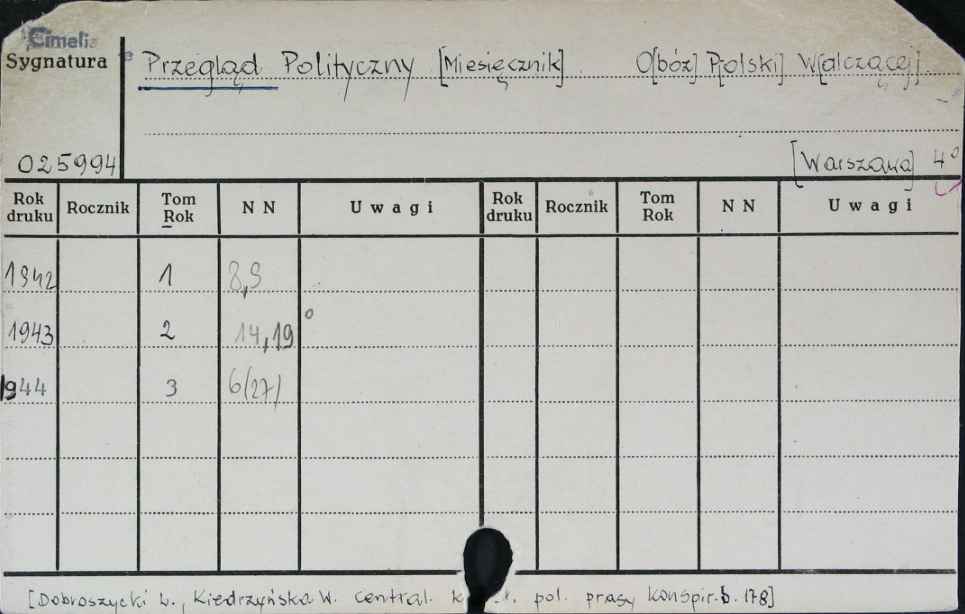 Cimelia
Sygnatura
Przegląd Polityczny [Miesięcznik]. O[bóz] P[olski] W[alczącej]
025994
[Warszawa] 4°
Rok druku Rocznik Tom Rok N N Uwagi Rok druku Rocznik Tom Rok N N Uwagi
1942 1 8,9
1943 2 14,19 °
1944 3 6(27)
[Dobroszycki L., Kiedrzyńska W. Central. pol. prasy konspir. 178]